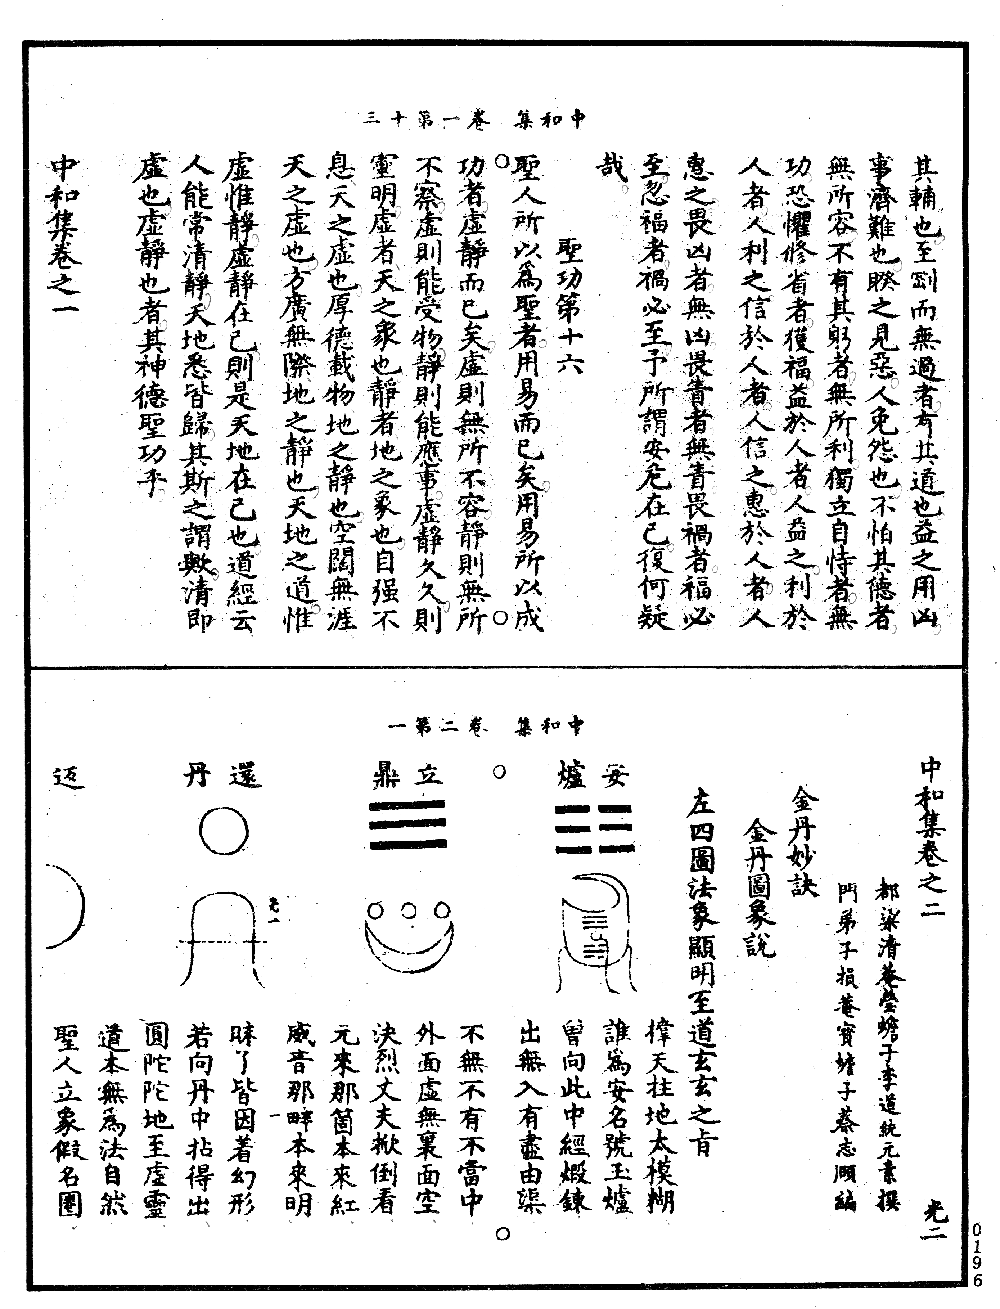 中和集　卷一第十三
其輔也至剛而無過者有其道也益之用凶
事濟難也睽之見惡人免怨也不怕其德者
無所容不有其躬者無所利獨立自恃者無
功恐懼修省者獲福益於人者人益之利於
人者人利之信於人者人信之惠於人者人
惠之畏凶者無凶畏眚者無眚畏禍者福必
至忽福者禍必至予所謂安危在己復何疑
哉
聖功第十六
聖人所以爲聖者用易而已矣用易所以成
功者虛靜而已矣虛則無所不容靜則無所
不察虛則能受物靜則能應事虛靜久久則
靈明虛者天之象也靜者地之象也自强不
息天之虛也厚德載物地之靜也空闊無涯
天之虛也方廣無際地之靜也天地之道惟
虛惟靜虛靜在己則是天地在己也道經云
人能常清靜天地悉皆歸其斯之謂歟清即
虛也虛靜也者其神德聖功乎
中和集卷之一
中和集　卷二第一
中和集卷之二　光二
都梁清菴瑩蟾子李道純元素撰
門弟子損菴寶蟾子蔡志頤編
金丹妙訣
金丹圖象說
左四圖法象顯明至道玄玄之旨
安爐
撑天柱地太模糊
誰爲安名號玉爐
曾向此中經煅鍊
出無入有盡由渠
立鼎
不無不有不當中
外面虛無裏面空
決烈丈夫掀倒看
元來那箇本來紅
還丹
光一
威音那畔本來明
昧了皆因著幻形
若向丹中拈得出
圓陀陀地至虛靈
返
道本無爲法自然
聖人立象假名圈
0196